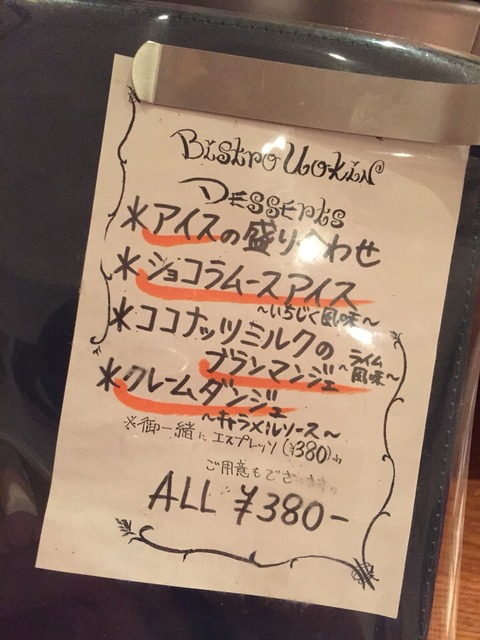 Bistro Uokin
Desserts
*アイスの盛り合わせ
*ショコラムースアイス
~いちじく風味~
*ココナッツミルクの
ブランマンジェ ~ライム風味~
*クレームダンジェ
~キャラメルソース~
※御一緒にエスプレッソ(¥380)
ご用意もでき
ALL ¥380-